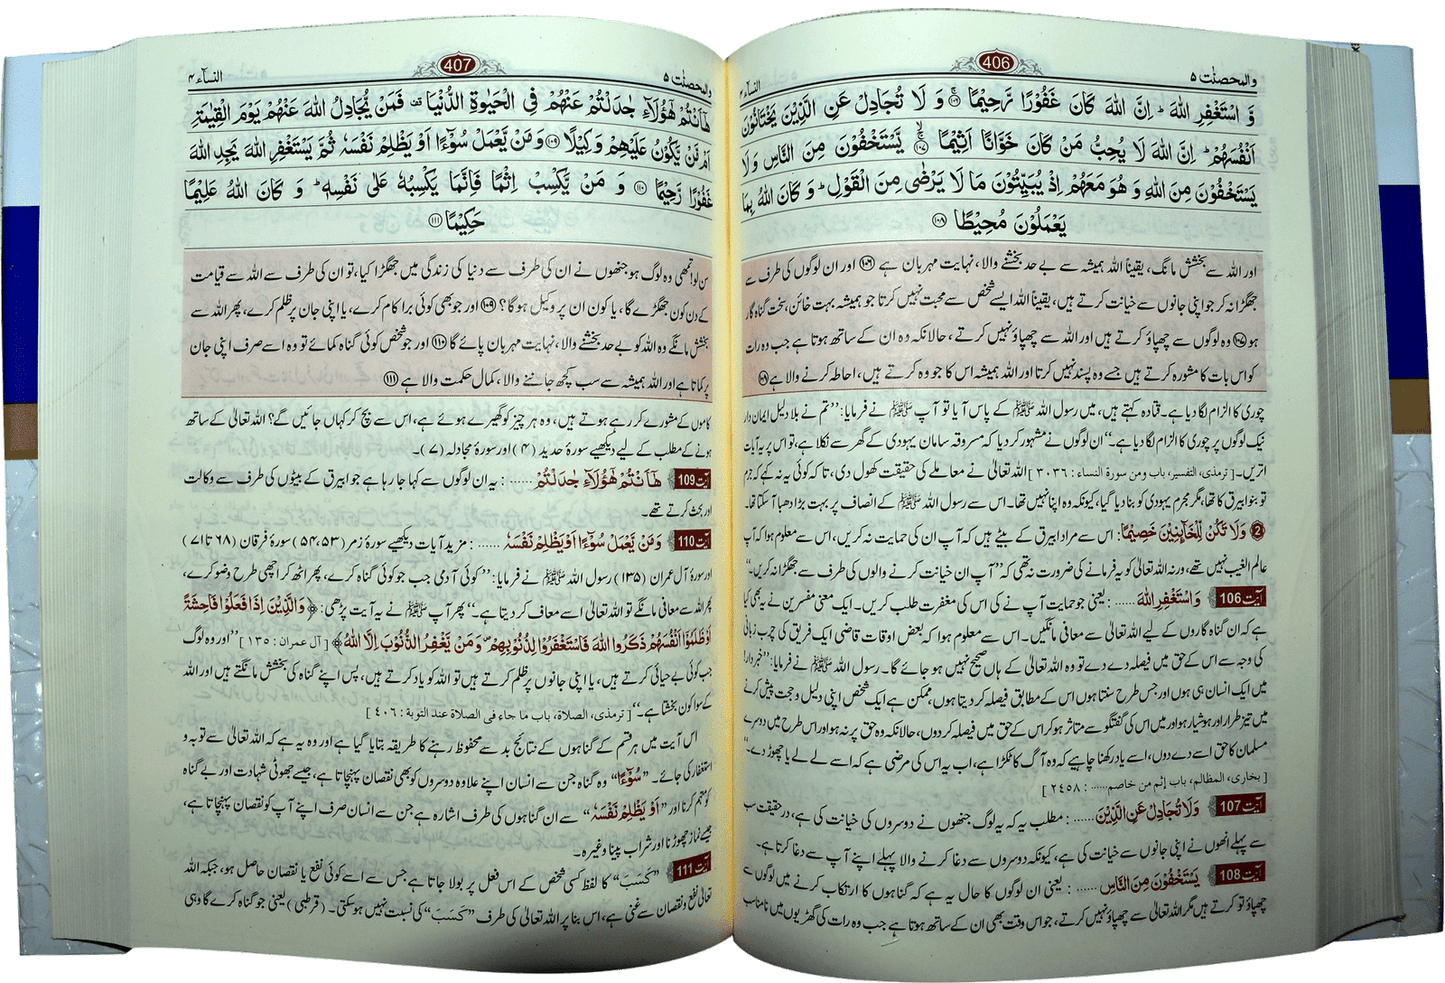 والمحصنٰت ۵
406
النسآء ۴
وَّ اسْتَغْفِرِ اللّٰهَ ؕ اِنَّ اللّٰهَ كَانَ غَفُوْرًا رَّحِيْمًا ۚ﴿۱۰۶﴾ وَ لَا تُجَادِلْ عَنِ الَّذِيْنَ يَخْتَانُوْنَ
اَنْفُسَهُمْ ؕ اِنَّ اللّٰهَ لَا يُحِبُّ مَنْ كَانَ خَوَّانًا اَثِيْمًا ۙ﴿۱۰۷﴾ يَّسْتَخْفُوْنَ مِنَ النَّاسِ وَ لَا
يَسْتَخْفُوْنَ مِنَ اللّٰهِ وَ هُوَ مَعَهُمْ اِذْ يُبَيِّتُوْنَ مَا لَا يَرْضٰى مِنَ الْقَوْلِ ؕ وَ كَانَ اللّٰهُ بِمَا
يَعْمَلُوْنَ مُحِيْطًا ﴿۱۰۸﴾
اور اللہ سے بخشش مانگ، یقیناً اللہ ہمیشہ سے بے حد بخشنے والا، نہایت مہربان ہے ﴿۱۰۶﴾ اور ان لوگوں کی طرف سے
جھگڑا نہ کر جو اپنی جانوں سے خیانت کرتے ہیں، یقیناً اللہ ایسے شخص سے محبت نہیں کرتا جو ہمیشہ بہت خائن، سخت گناہ گار
ہو ﴿۱۰۷﴾ وہ لوگوں سے چھپاؤ کرتے ہیں اور اللہ سے چھپاؤ نہیں کرتے، حالانکہ وہ ان کے ساتھ ہوتا ہے جب وہ رات
کو اس بات کا مشورہ کرتے ہیں جسے وہ پسند نہیں کرتا اور اللہ ہمیشہ اس کا جو وہ کرتے ہیں، احاطہ کرنے والا ہے ﴿۱۰۸﴾
چوری کا الزام لگا دیا ہے۔ قتادہ کہتے ہیں، میں رسول اللہ ﷺ کے پاس آیا تو آپ ﷺ نے فرمایا: ”تم نے بلا دلیل ایمان دار
نیک لوگوں پر چوری کا الزام لگا دیا ہے۔“ ان لوگوں نے مشہور کر دیا کہ مسروقہ سامان یہودی کے گھر سے نکلا ہے، تو اس پر یہ آیات
اتریں۔ [ ترمذی، التفسیر، باب ومن سورۃ النساء : ۳۰۳۶ ] اللہ تعالیٰ نے معاملے کی حقیقت کھول دی، تاکہ کوئی یہ نہ کہے کہ جرم
تو بنو ابیرق کا تھا، مگر مجرم یہودی کو بنا دیا گیا، کیونکہ وہ اپنا نہیں تھا۔ اس سے رسول اللہ ﷺ کے انصاف پر بہت بڑا دھبا آ سکتا تھا۔
② وَلَا تَكُنْ لِّلْخَآىِٕنِيْنَ خَصِيْمًا: اس سے مراد ابیرق کے بیٹے ہیں کہ آپ ان کی حمایت نہ کریں، اس سے معلوم ہوا کہ آپ
عالم الغیب نہیں تھے، ورنہ اللہ تعالیٰ کو یہ فرمانے کی ضرورت نہ تھی کہ ”آپ ان خیانت کرنے والوں کی طرف سے جھگڑا نہ کریں۔“
آیت 106 وَاسْتَغْفِرِ اللّٰهَ ……: یعنی جو حمایت آپ نے کی اس کی مغفرت طلب کریں۔ ایک معنی مفسرین نے یہ بھی کیا
ہے کہ ان گناہ گاروں کے لیے اللہ تعالیٰ سے معافی مانگیں۔ اس سے معلوم ہوا کہ بعض اوقات قاضی ایک فریق کی چرب زبانی
کی وجہ سے اس کے حق میں فیصلہ دے دے تو وہ اللہ تعالیٰ کے ہاں صحیح نہیں ہو جائے گا۔ رسول اللہ ﷺ نے فرمایا: ”خبردار!
میں ایک انسان ہی ہوں اور جس طرح سنتا ہوں اس کے مطابق فیصلہ کر دیتا ہوں، ممکن ہے ایک شخص اپنی دلیل و حجت پیش کرنے
میں تیز طرار اور ہوشیار ہو اور میں اس کی گفتگو سے متاثر ہو کر اس کے حق میں فیصلہ کر دوں، حالانکہ وہ حق پر نہ ہو اور اس طرح میں دوسرے
مسلمان کا حق اسے دے دوں، اسے یاد رکھنا چاہیے کہ وہ آگ کا ٹکڑا ہے، اب یہ اس کی مرضی ہے کہ اسے لے لے یا چھوڑ دے۔“
[ بخاری، المظالم، باب إثم من خاصم…… : ۲٤۵۸ ]
آیت 107 وَلَا تُجَادِلْ عَنِ الَّذِيْنَ ……: مطلب یہ کہ یہ لوگ جنھوں نے دوسروں کی خیانت کی ہے، درحقیقت سب
سے پہلے انھوں نے اپنی جانوں سے خیانت کی ہے، کیونکہ دوسروں سے دغا کرنے والا پہلے اپنے آپ سے دغا کرتا ہے۔
آیت 108 يَسْتَخْفُوْنَ مِنَ النَّاسِ ……: یعنی ان لوگوں کا حال یہ ہے کہ گناہوں کا ارتکاب کرنے میں لوگوں سے
چھپاؤ تو کرتے ہیں مگر اللہ تعالیٰ سے چھپاؤ نہیں کرتے، جو اس وقت بھی ان کے ساتھ ہوتا ہے جب وہ رات کی گھڑیوں میں نامناسب
والمحصنٰت ۵
407
النسآء ۴
هٰۤاَنْتُمْ هٰۤؤُلَآءِ جٰدَلْتُمْ عَنْهُمْ فِي الْحَيٰوةِ الدُّنْيَا ۫ فَمَنْ يُّجَادِلُ اللّٰهَ عَنْهُمْ يَوْمَ الْقِيٰمَةِ
اَمْ مَّنْ يَّكُوْنُ عَلَيْهِمْ وَكِيْلًا ﴿۱۰۹﴾ وَ مَنْ يَّعْمَلْ سُوْٓءًا اَوْ يَظْلِمْ نَفْسَهٗ ثُمَّ يَسْتَغْفِرِ اللّٰهَ يَجِدِ اللّٰهَ
غَفُوْرًا رَّحِيْمًا ﴿۱۱۰﴾ وَ مَنْ يَّكْسِبْ اِثْمًا فَاِنَّمَا يَكْسِبُهٗ عَلٰى نَفْسِهٖ ؕ وَ كَانَ اللّٰهُ عَلِيْمًا
حَكِيْمًا ﴿۱۱۱﴾
سن لو! تمھی وہ لوگ ہو جنھوں نے ان کی طرف سے دنیا کی زندگی میں جھگڑا کیا، تو ان کی طرف سے اللہ سے قیامت
کے دن کون جھگڑے گا، یا کون ان پر وکیل ہوگا؟ ﴿۱۰۹﴾ اور جو بھی کوئی برا کام کرے، یا اپنی جان پر ظلم کرے، پھر اللہ سے
بخشش مانگے وہ اللہ کو بے حد بخشنے والا، نہایت مہربان پائے گا ﴿۱۱۰﴾ اور جو شخص کوئی گناہ کمائے تو وہ اسے صرف اپنی جان
پر کماتا ہے اور اللہ ہمیشہ سے سب کچھ جاننے والا، کمال حکمت والا ہے ﴿۱۱۱﴾
کاموں کے مشورے کر رہے ہوتے ہیں، وہ ہر چیز کو گھیرے ہوئے ہے، اس سے بچ کر کہاں جائیں گے؟ اللہ تعالیٰ کے ساتھ
ہونے کے مطلب کے لیے دیکھیے سورۂ حدید (۴) اور سورۂ مجادلہ (۷)۔
آیت 109 هٰۤاَنْتُمْ هٰۤؤُلَآءِ جٰدَلْتُمْ ……: یہ ان لوگوں سے کہا جا رہا ہے جو ابیرق کے بیٹوں کی طرف سے وکالت
اور بحث کرتے تھے۔
آیت 110 وَمَنْ يَّعْمَلْ سُوْٓءًا اَوْ يَظْلِمْ نَفْسَهٗ ……: مزید آیات دیکھیے سورۂ زمر (۵۳، ۵۴) سورۂ فرقان (۶۸ تا ۷۱)
اور سورۂ آل عمران (۱۳۵) رسول اللہ ﷺ نے فرمایا: ”کوئی آدمی جب جو کوئی گناہ کرے، پھر اٹھ کر اچھی طرح وضو کرے،
پھر اللہ سے معافی مانگے تو اللہ تعالیٰ اسے معاف کر دیتا ہے۔“ پھر آپ ﷺ نے یہ آیت پڑھی: ﴿وَالَّذِيْنَ اِذَا فَعَلُوْا فَاحِشَةً
اَوْ ظَلَمُوْۤا اَنْفُسَهُمْ ذَكَرُوا اللّٰهَ فَاسْتَغْفَرُوْا لِذُنُوْبِهِمْ ۪ وَمَنْ يَّغْفِرُ الذُّنُوْبَ اِلَّا اللّٰهُ﴾ [ آل عمران : ۱۳۵ ] ”اور وہ لوگ
جب کوئی بے حیائی کرتے ہیں، یا اپنی جانوں پر ظلم کرتے ہیں تو اللہ کو یاد کرتے ہیں، پس اپنے گناہ کی بخشش مانگتے ہیں اور اللہ
کے سوا کون بخشتا ہے۔“ [ ترمذی، الصلاة، باب ما جاء فی الصلاة عند التوبة : ٤٠٦ ]
اس آیت میں ہر قسم کے گناہوں کے نتائج بد سے محفوظ رہنے کا طریقہ بتایا گیا ہے اور وہ یہ ہے کہ اللہ تعالیٰ سے توبہ و
استغفار کی جائے۔ ”سُوْٓءًا“ وہ گناہ جن سے انسان اپنے علاوہ دوسروں کو بھی نقصان پہنچاتا ہے، جیسے جھوٹی شہادت اور بے گناہ
کو متہم کرنا اور ”اَوْ يَظْلِمْ نَفْسَهٗ“ سے ان گناہوں کی طرف اشارہ ہے جن سے انسان صرف اپنے آپ کو نقصان پہنچاتا ہے،
جیسے نماز چھوڑنا اور شراب پینا وغیرہ۔
آیت 111 ”كَسَبَ“ کا لفظ کسی شخص کے اس فعل پر بولا جاتا ہے جس سے اسے کوئی نفع یا نقصان حاصل ہو، جبکہ اللہ
تعالیٰ نفع و نقصان سے غنی ہے، اس بنا پر اللہ تعالیٰ کی طرف ”كَسَبَ“ کی نسبت نہیں ہو سکتی۔ (قرطبی) یعنی جو گناہ کرے گا وہی